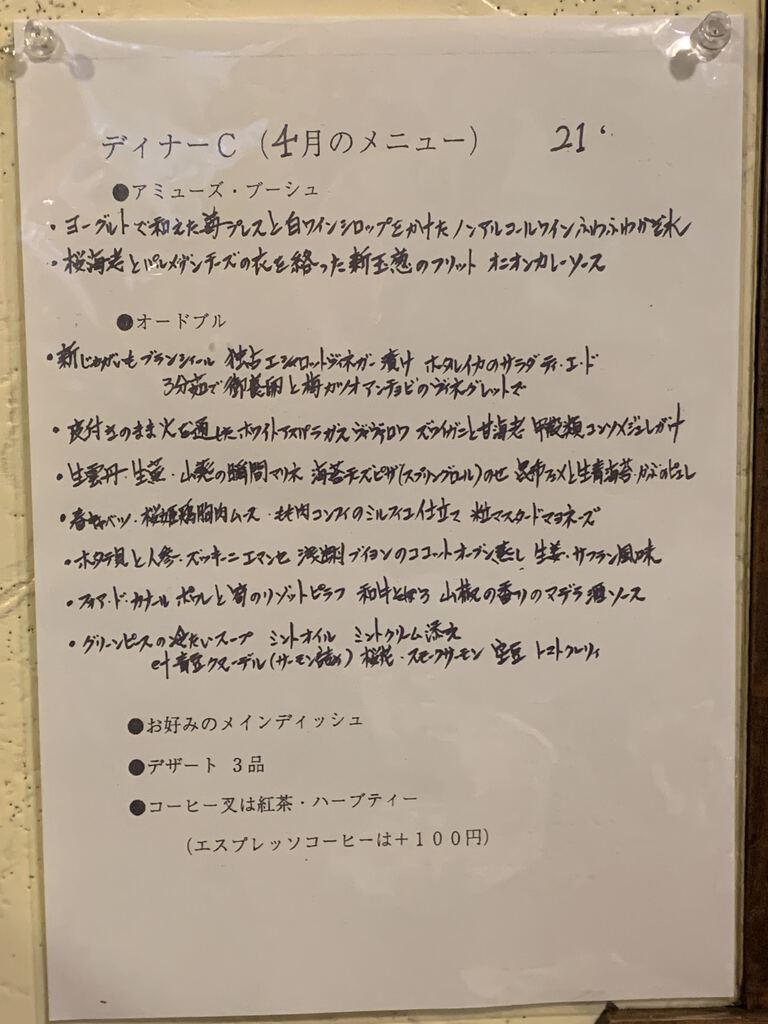 ディナーC（4月のメニュー） 21'
●アミューズ・ブーシュ
・ヨーグルトで和えた苺プレスと白ワインシロップをかけたノンアルコールワインふわふわかき氷
・桜海老とパルメザンチーズの衣を絡った新玉葱のフリット オニオンカレーソース
●オードブル
・新じゃがいもブランシィール 独占エシャロットヴィネガー漬け ホタルイカのサラダティ・エ・ド
3分茹で御養卵と梅カツオアンチョビのヴィネグレットで
・皮付きのまま火を通したホワイトアスパラガス ズワイガニと甘海老 甲殻類コンソメジュレがけ
・生雲丹・生 ・山 の瞬間マリネ 海苔チーズピザ(スプリングロール)のせ 昆布 と生青海苔・かぶのピュレ
・春キャベツ・桜姫鶏胸肉ムース・もも肉コンフィのミルフィユ仕立て 粒マスタードマヨネーズ
・ホタテ貝と人参・ズッキーニエマンセ ブイヨンのココットオーブン蒸し 生姜・サフラン風味
・フォア・ド・カナール ポワレと筍のリゾットピラフ 和牛そぼろ 山椒の香りのマデラ酒ソース
・グリーンピースの冷たいスープ ミントオイル ミントクリーム添え
et 青豆クネーデル(サーモン詰め) 桜花・スモークサーモン 空豆 トマトクーリィ
●お好みのメインディッシュ
●デザート ３品
●コーヒー又は紅茶・ハーブティー
(エスプレッソコーヒーは＋１００円)